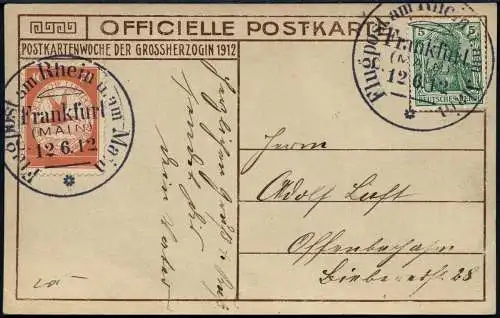 OFFICIELLE POSTKARTE
POSTKARTENWOCHE DER GROSSHERZOGIN 1912
Flugpost am Rhein u. am Main
Frankfurt
(MAIN)
12 6. 12
Flugpost am Rhein
Frankfurt
(MAIN)
12 6. 12
5
DEUTSCHES REICH
Herzlichen Gruß
sendet dir
dein Vater
Adolf Luft
Offenbach
Bieberer str 28